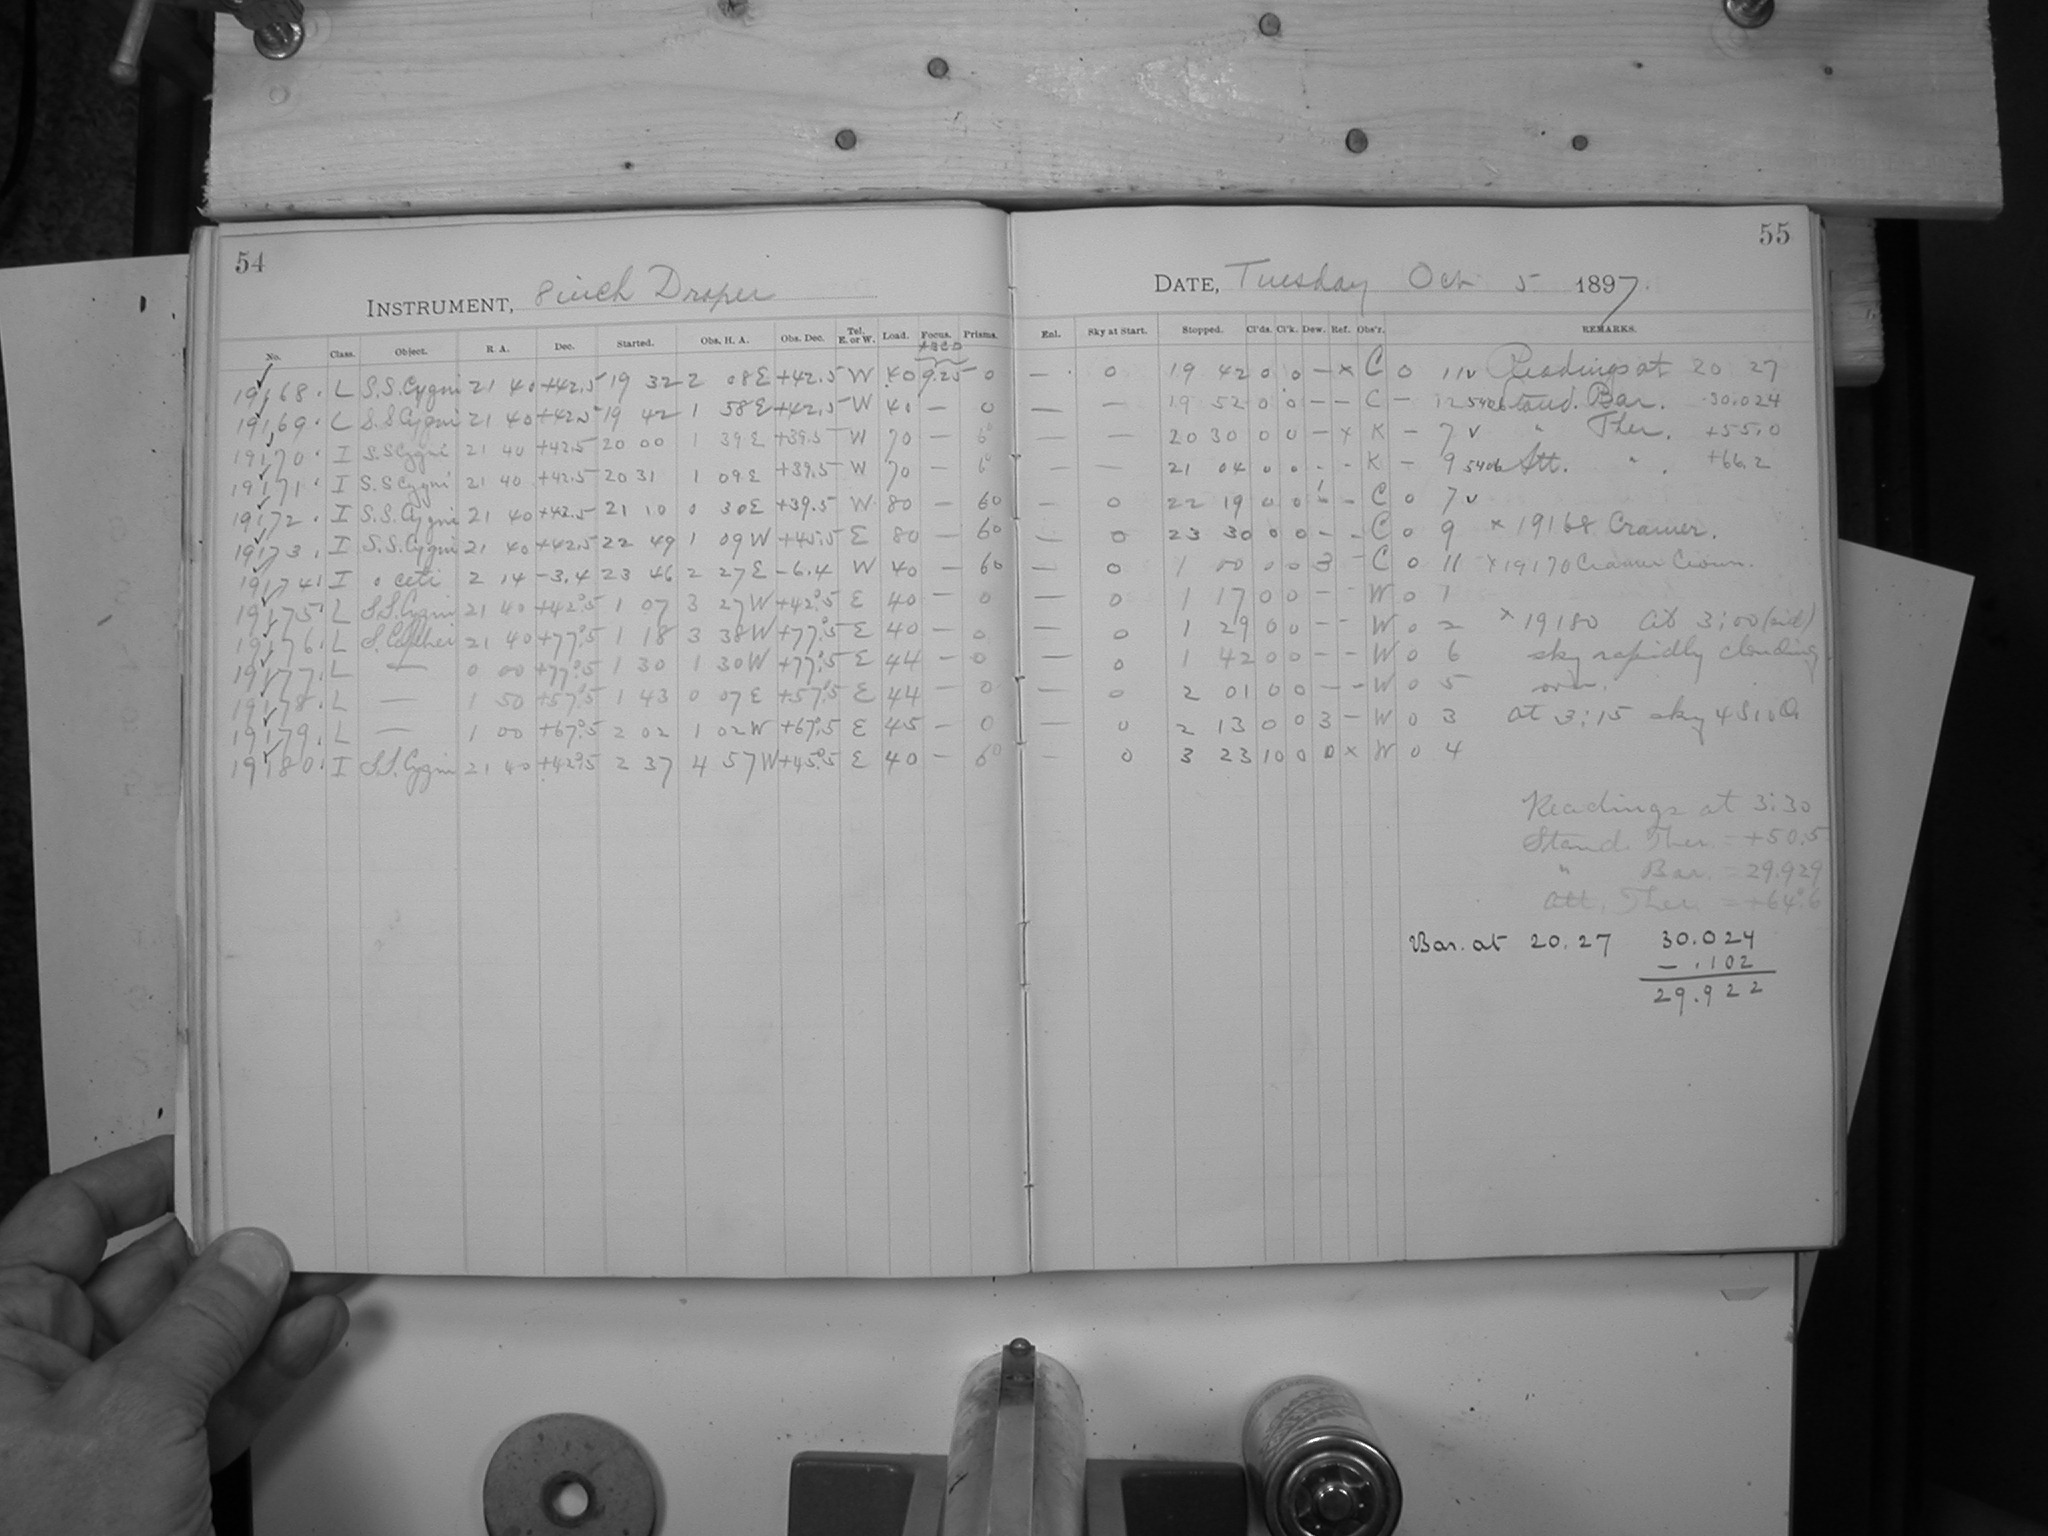 54
INSTRUMENT, 8 inch Draper
No. Class. Object. R. A. Dec. Started. Obs. H. A. Obs. Dec. Tel. E. or W. Load. Focus. Prisms.
19168. L S.S. Cygni 21 40 +42.5 19 32 2 08E +42.5 W 40 9.25 0
19169. L S.S Cygni 21 40 +42.5 19 42 1 58E +42.5 W 40 — 0
19170. I S.S Cygni 21 40 +42.5 20 00 1 39E +39.5 W 70 —
19171. I S.S Cygni 21 40 +42.5 20 31 1 09E +39.5 W 70 —
19172. I S.S. Cygni 21 40 +42.5 21 10 0 30E +39.5 W 80 — 60
19173. I S.S. Cygni 21 40 +42.5 22 49 1 09W +45.5 E 80 — 60
19174. I o ceti 2 14 -3.4 23 46 2 27E -6.4 W 40 — 60
19175. L S.S. Cygni 21 40 +42°.5 1 07 3 27W +42°.5 E 40 — 0
19176. L S. Cephei 21 40 +77°.5 1 18 3 38W +77°.5 E 40 — 0
19177. L — 0 00 +77°.5 1 30 1 30W +77°.5 E 44 — 0
19178. L — 1 50 +57°.5 1 43 0 07E +57°.5 E 44 — 0
19179. L — 1 00 +67°.5 2 02 1 02W +67°.5 E 45 — 0
19180. I S.S. Cygni 21 40 +42°.5 2 37 4 57W +45°.5 E 40 — 60
55
DATE, Tuesday Oct 5 1897.
Enl. Sky at Start. Stopped. Cl'ds. Cl'k. Dew. Ref. Obs'r. REMARKS.
— 0 19 42 0 0 — x C 0 11v Readings at 20 27
— — 19 52 0 0 — — C — 12 5406 Stand. Bar. 30.024
— — 20 30 0 0 — x K — 7v " Ther. +55.0
— — 21 04 0 0 - - K — 9 5406 Att. " . +66.2
— 0 22 19 0 0 1 - C 0 7v
— 0 23 30 0 0 - - C 0 9 x 19168 Cramer.
— 0 1 00 0 0 3 - C 0 11 x 19170 Cramer Crown.
— 0 1 17 0 0 - - W 0 1
— 0 1 29 0 0 - - W 0 2 x 19180 at 3:00 (sid)
— 0 1 42 0 0 - - W 0 6 sky rapidly clouding
— 0 2 01 0 0 - - W 0 5 over.
— 0 2 13 0 0 3 - W 0 3 at 3:15 sky
— 0 3 23 10 0 0 x W 0 4
Readings at 3:30
Stand. Ther. = +50.5
" Bar. = 29.929
Att. Ther. = +64°.6
Bar. at 20.27 30.024
— .102
29.922